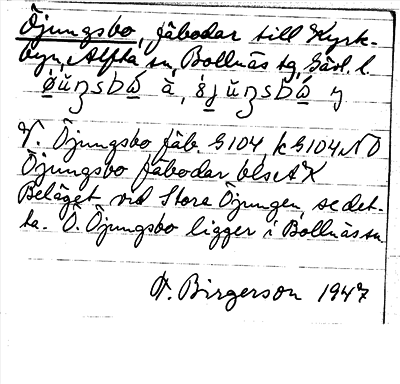 Öjungsbo, fäbodar till Kyrk-
byn, Alfta sn, Bollnäs tg, Gävl. l.
V. Öjungsbo fäb. G104, kG104NO
Öjungsbo fäbodar bls AK
Beläget vid Stora Öjungen, se det-
ta. Ö. Öjungsbo ligger i Bollnäs sn.
F. Birgerson 1947